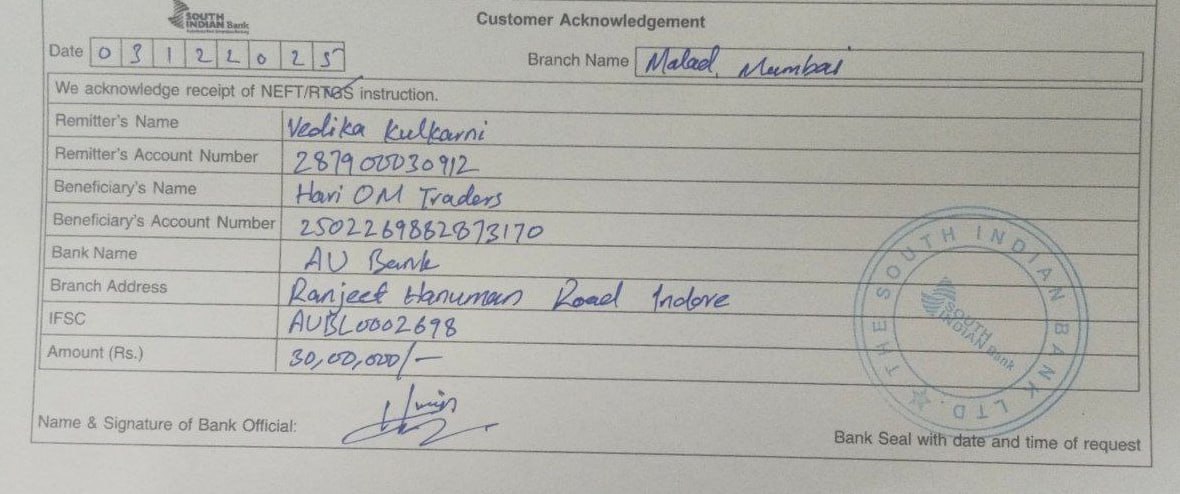 SOUTH INDIAN Bank
Customer Acknowledgement
Date 03122025 Branch Name Malad, Mumbai
We acknowledge receipt of NEFT/RTGS instruction.
Remitter's Name Vedika Kulkarni
Remitter's Account Number 287900030912
Beneficiary's Name Hari OM Traders
Beneficiary's Account Number 2502269882873170
Bank Name AU Bank
Branch Address Ranjeet Hanuman Road Indore
IFSC AUBL0002698
Amount (Rs.) 30,00,000/-
Name & Signature of Bank Official:
THE SOUTH INDIAN BANK LTD.
SOUTH INDIAN Bank
Bank Seal with date and time of request